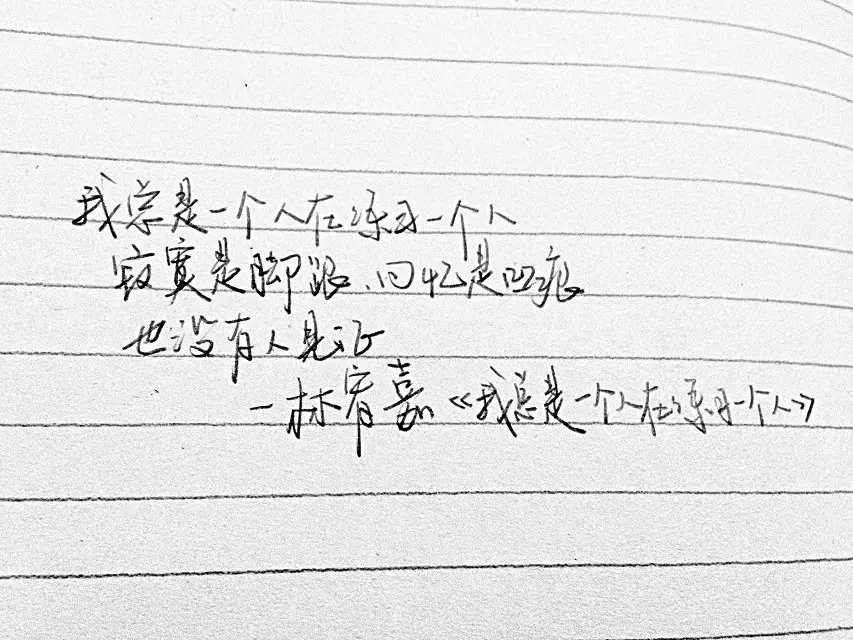 我总是一个人在练习一个人
寂寞是脚跟、回忆是凹痕
也没有人见证
—林宥嘉《我总是一个人在练习一个人》